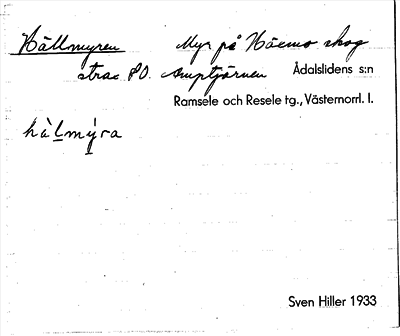 Hällmyren Myr på Näsmo skog
strax SO. Amptjärnen Ådalslidens s:n
Ramsele och Resele tg., Västernorrl. l.
hàlmýra
Sven Hiller 1933